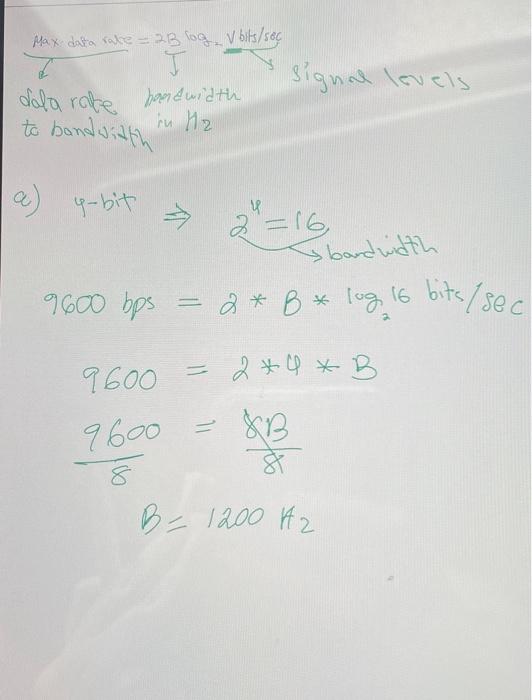 Max data rate = 2B log₂ V bits/sec
signal levels
data rate to bandwidth
bandwidth in Hz
a) 4-bit ⇒ 2⁴ = 16
bandwidth
9600 bps = 2 * B * log₂ 16 bits/sec
9600 = 2 * 4 * B
9600/8 = 8B/8
B = 1200 Hz